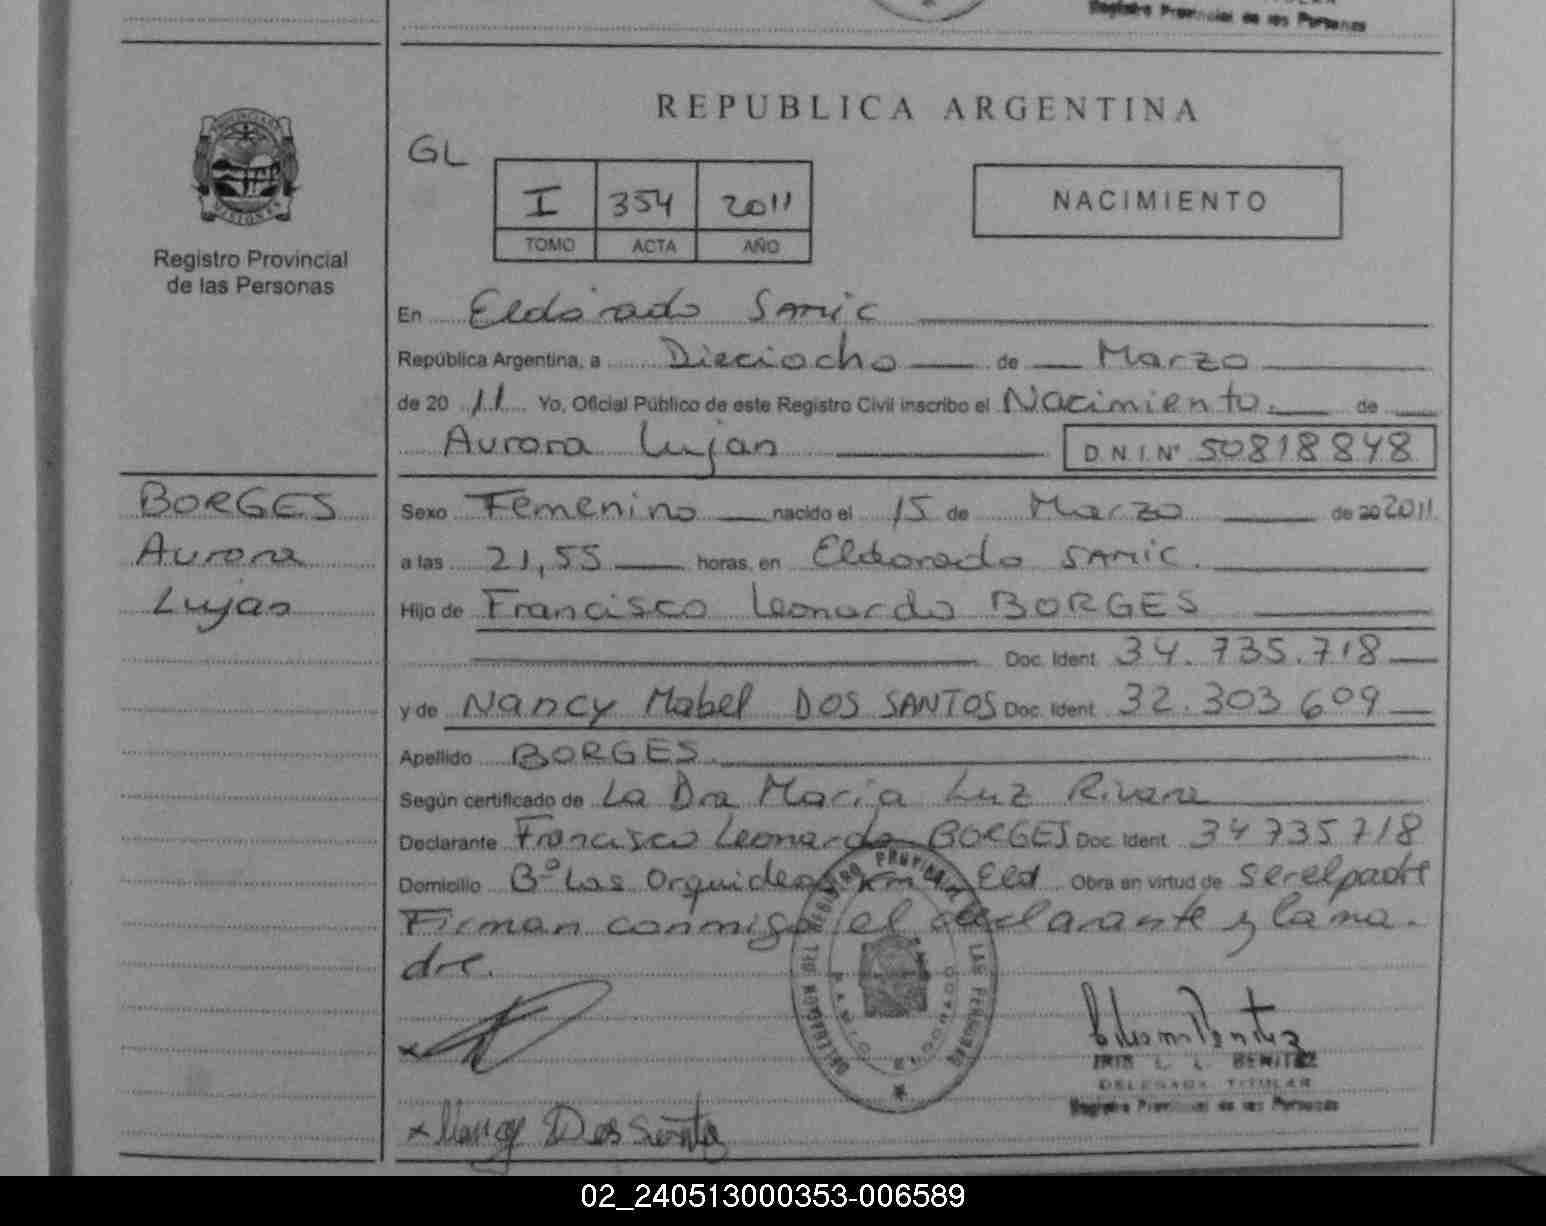 Registro Provincial de las Personas
REPUBLICA ARGENTINA
GL
I 354 2011
TOMO ACTA AÑO
NACIMIENTO
Registro Provincial
de las Personas
En Eldorado SAMIC
República Argentina, a Dieciocho de Marzo
de 20 11 Yo, Oficial Público de este Registro Civil inscribo el Nacimiento. de
Aurora Lujan D.N.I.Nº 50818848
BORGES
Aurora
Lujan
Sexo Femenino nacido el 15 de Marzo de 20 2011
a las 21,55 horas, en Eldorado SAMIC.
Hijo de Francisco Leonardo BORGES
Doc. Ident. 34.735.718
y de Nancy Mabel DOS SANTOS Doc. Ident. 32.303 609
Apellido BORGES.
Según certificado de La Dra Maria Luz Rivara
Declarante Francisco Leonardo BORGES Doc. Ident. 34 735 718
Domicilio Bº Las Orquideas Km Eld Obra en virtud de ser el padre
Firman conmigo el declarante y la ma.
dre.
DELEGACION DEL REGISTRO PROVINCIAL DE LAS PERSONAS
SAMIC ELDORADO
IRIS L. L. BENITEZ
DELEGADA TITULAR
Registro Provincial de las Personas
x Nancy Dos Santos
02_240513000353-006589